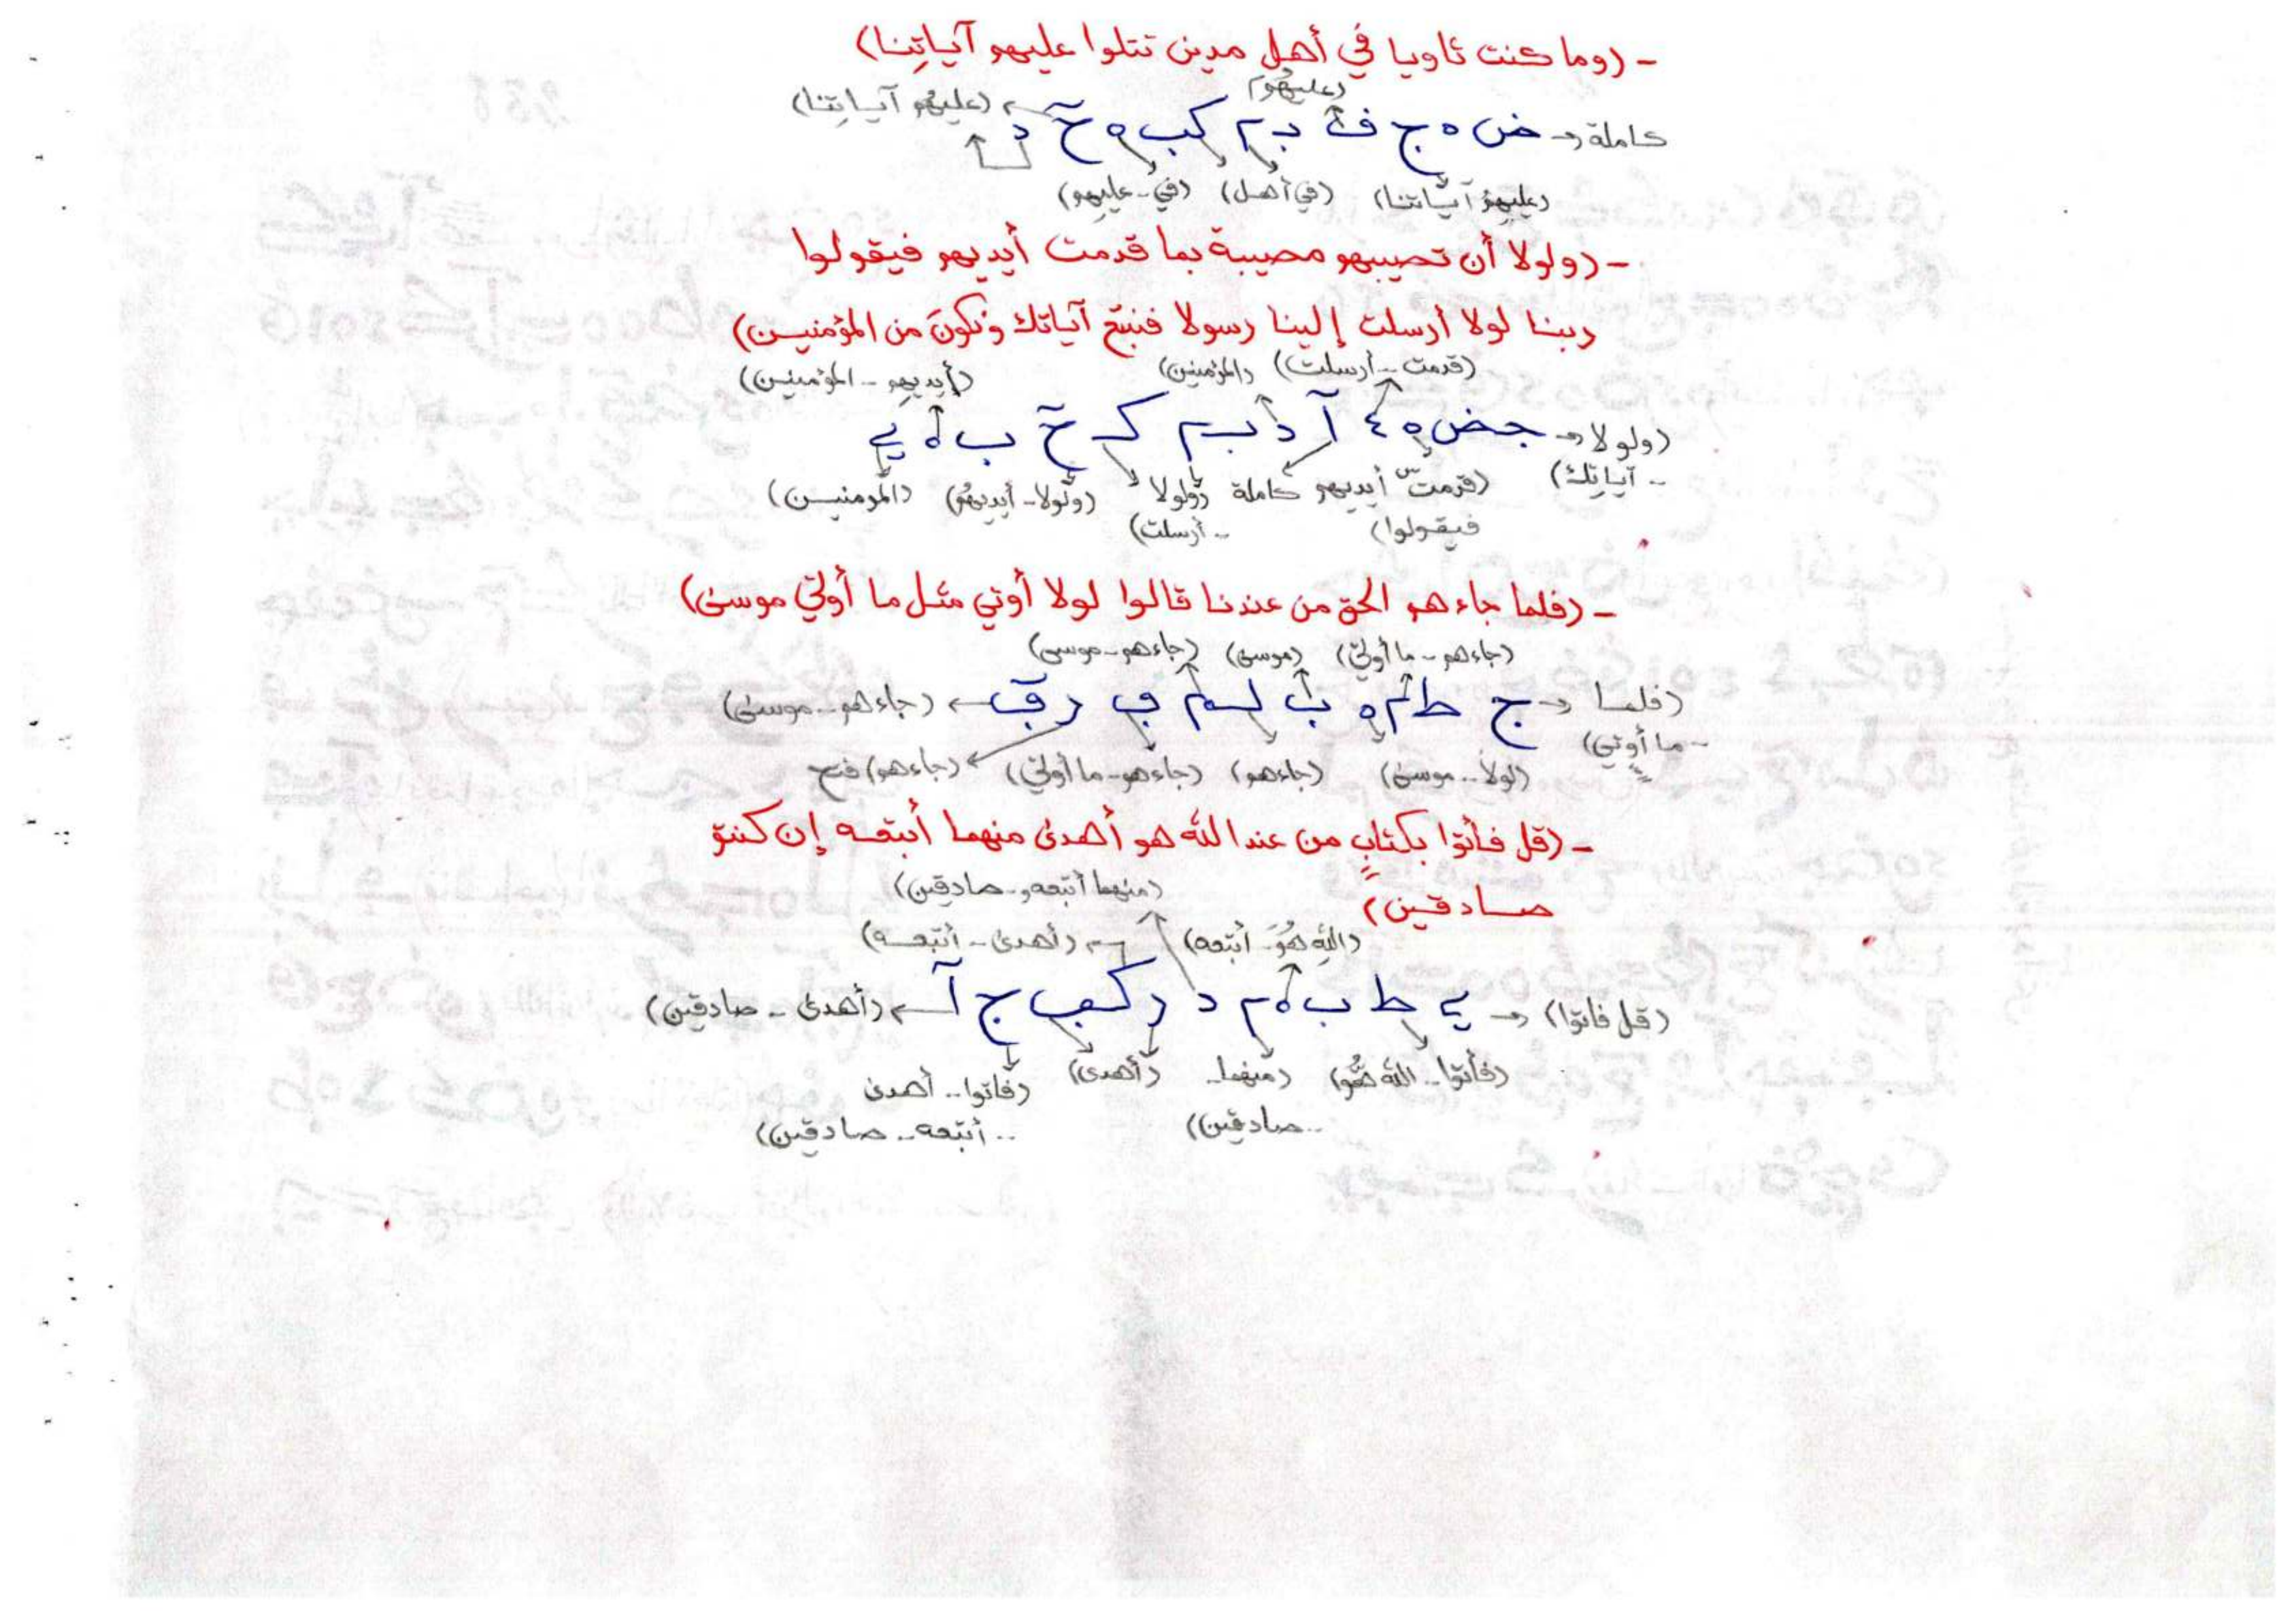 - (وما كنت ثاويا في أهل مدين تتلوا عليهم آياتِنا)
(عليهُم)
كاملة → ض ه ج ف بدم كب ه خ د (عليهُم آياتِنا)
(عليهم آياتنا) (في أهل) (في - عليهم)
- (ولولا أن تصيبهم مصيبة بما قدمت أيديهم فيقولوا
ربنا لولا أرسلت إلينا رسولا فنتبع آياتك ونكونَ من المؤمنين)
(قدمت - أرسلت) (المؤمنين) (أيديهم - المؤمنين)
(ولولا → جض ه ٤ آ د بم ك خ ب ه ي
- آياتك) (قدمت أيديهم كاملة (ولولا (ولولا - أيديهُم) (المومنين)
فيقولوا) - أرسلت)
- (فلما جاءهم الحق من عندنا قالوا لولا أوتي مثل ما أوتي موسىٰ)
(جاءهم - ما أوتي) (موسى) (جاءهم - موسى)
(فلما → ج ط م ه ب لم ف ر ق ← (جاءهم - موسىٰ)
- ما أوتي) (لولا - موسىٰ) (جاءهم) (جاءهم - ما أوتي) (جاءهم) فتح
- (قل فأتوا بكتابٍ من عند الله هو أهدىٰ منهما أتبعه إن كنتم
صادقين)
(منهما أتبعه - صادقين)
(الله هُوَ - أتبعه) (أهدىٰ - أتبعه)
(قل فاتوا) → ي ط ب ه م د ر كعب ج آ ← (أهدىٰ - صادقين)
(فأتوا - الله هُو) (منهما - (أهدىٰ) (فاتوا - أهدىٰ
- صادقين) - أتبعه - صادقين)